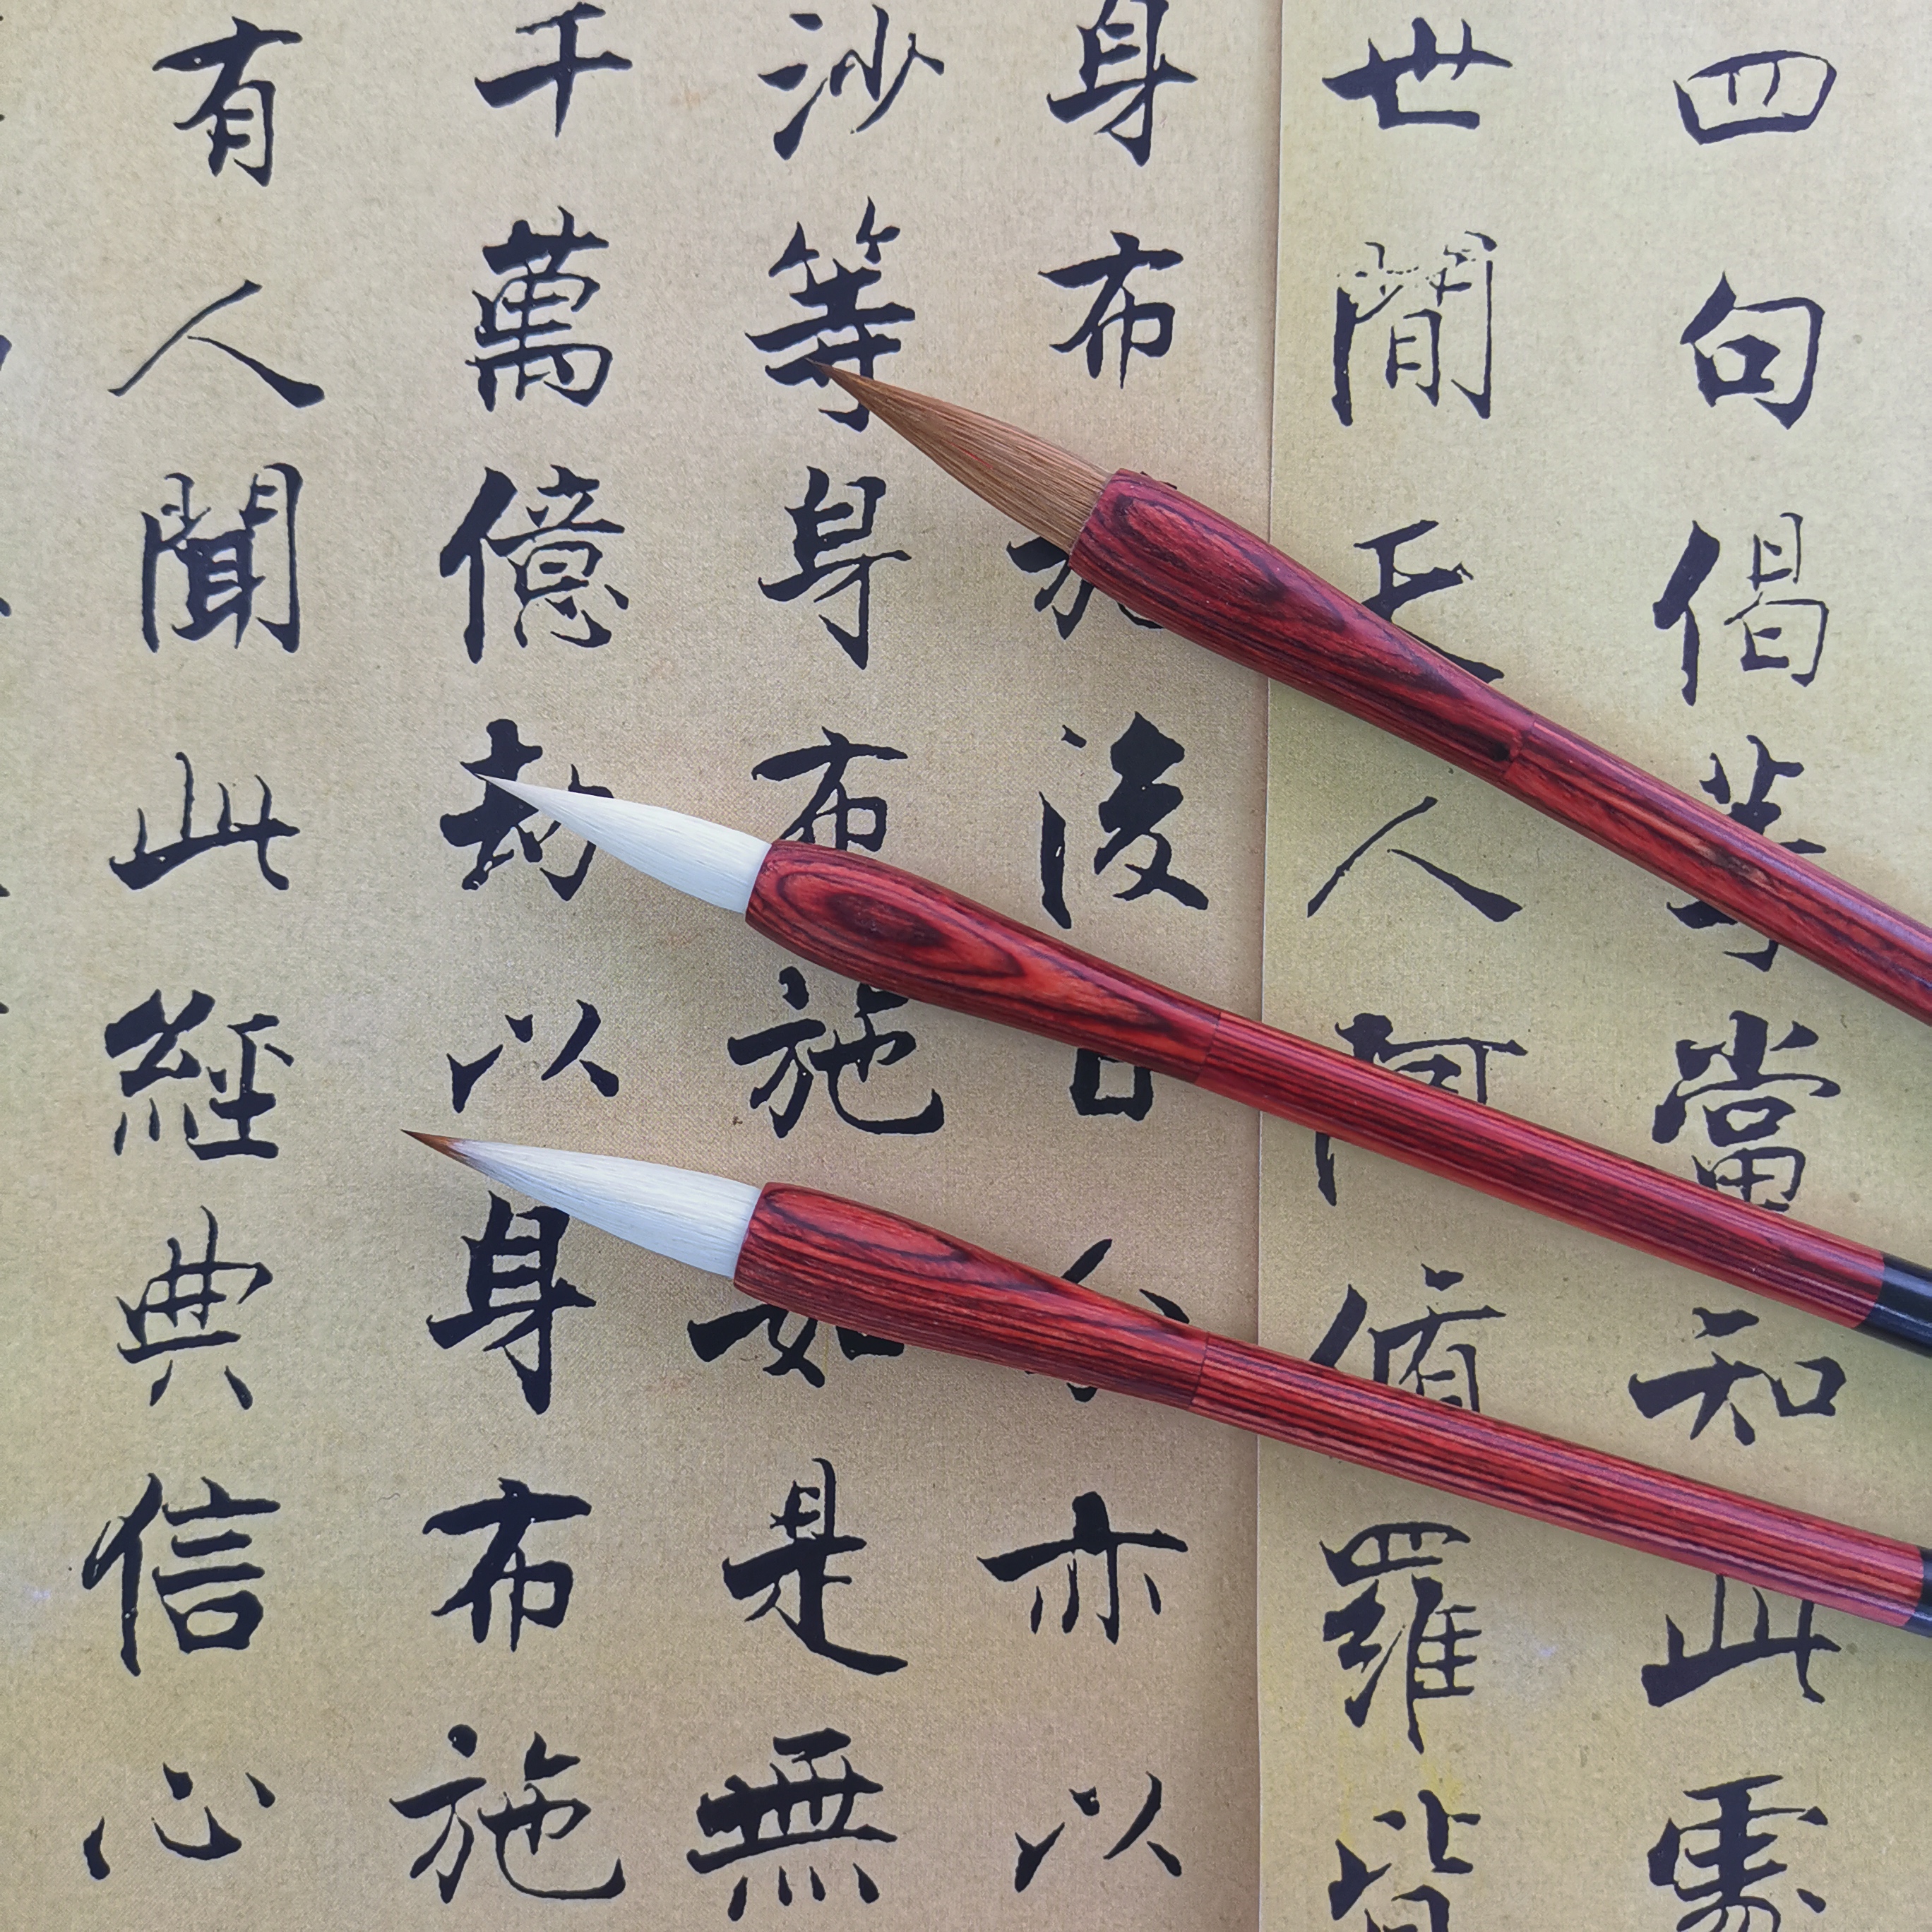 四句偈等當知此處
世間天人阿脩羅皆
身布施後日分亦以
沙等身布施如是無
千萬億劫以身布施
有人聞此經典信心